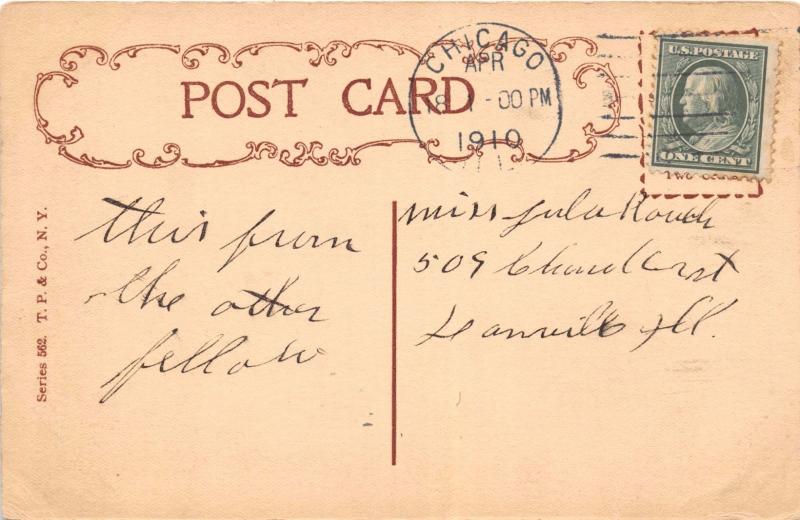 POST CARD
CHICAGO
APR
18 1-00 PM
1910
ILL
U.S. POSTAGE
ONE CENT
Series 562. T. P. & Co., N. Y.
this from
the other
fellow
miss Lula
509 st
Danville Ill.